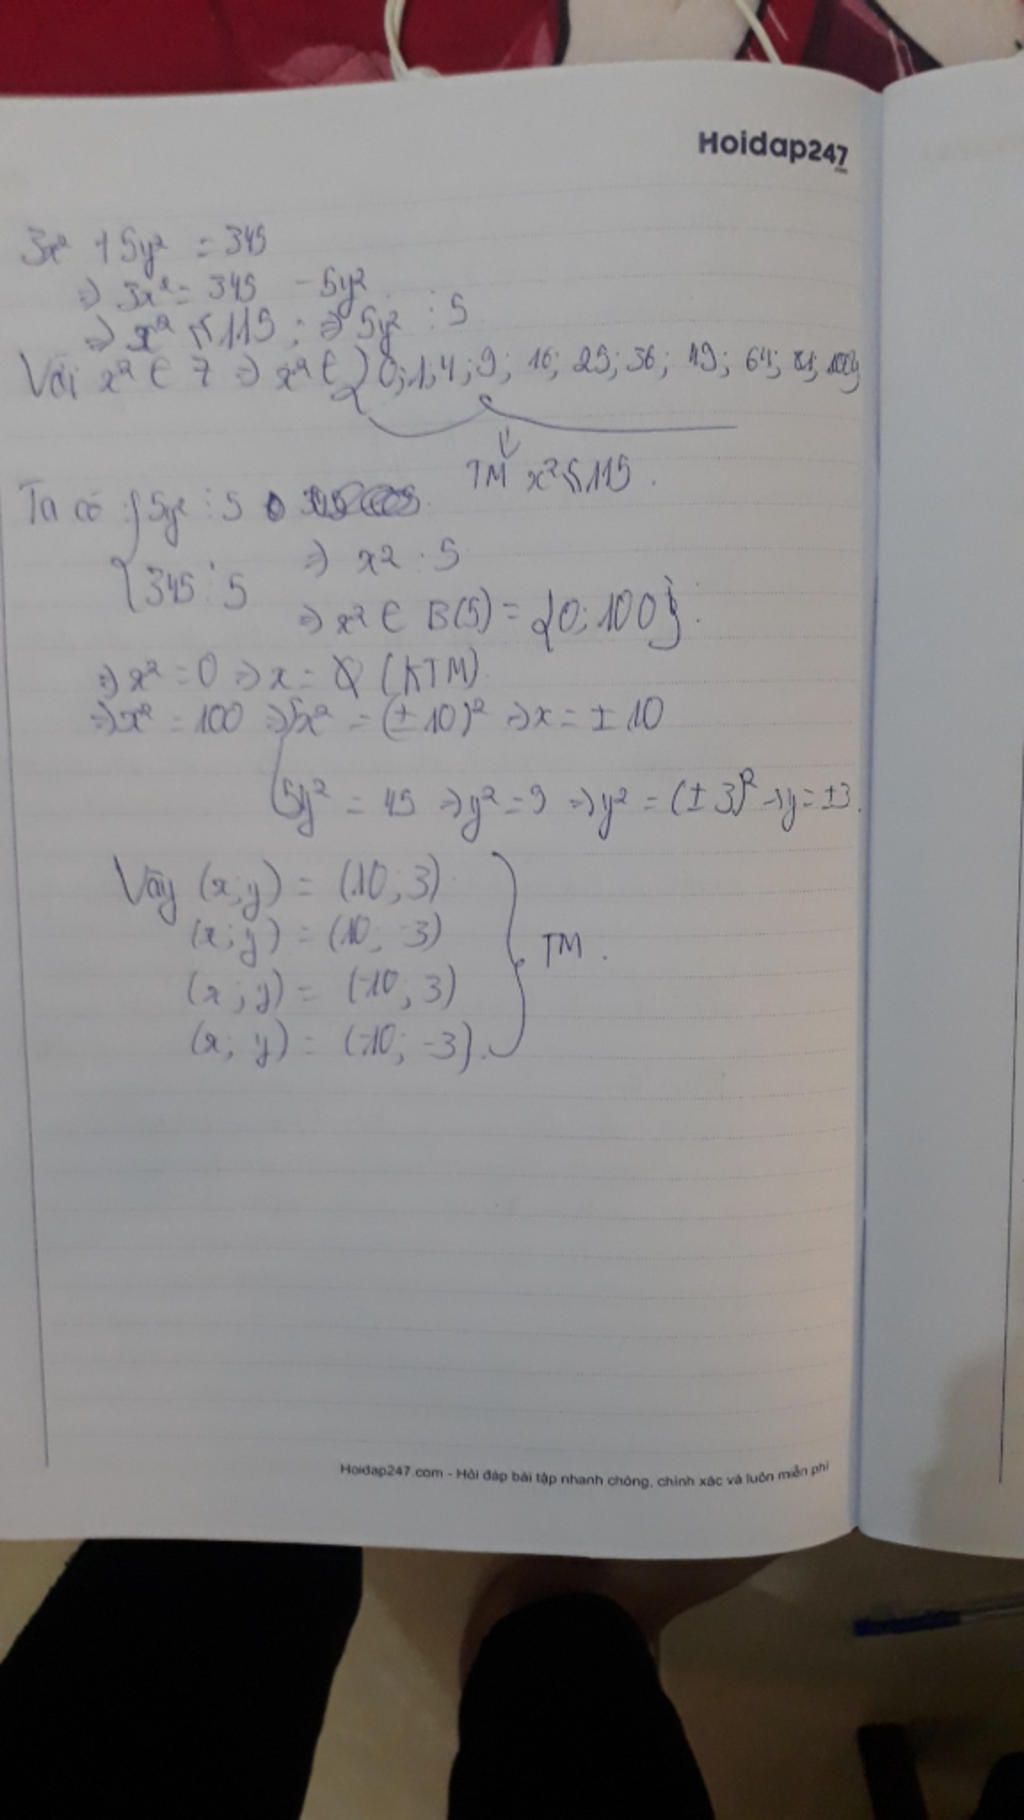 Hoidap247
.com
3x² + 5y² = 345
⇒ 3x² = 345 - 5y²
⇒ x² ≤ 115 ; ⇒ 5y² ⋮ 5
Với x² ∈ Z ⇒ x² ∈ {0; 1; 4; 9; 16; 25; 36; 49; 64; 81; 100}
TM x² ≤ 115.
Ta có { 5y² ⋮ 5
345 ⋮ 5 ⇒ x2 ⋮ 5
⇒ x² ∈ B(5) = {0; 100}.
⇒ x² = 0 ⇒ x = (KTM)
⇒ x² = 100 ⇒ x² = (±10)² ⇒ x = ±10
5y² = 45 ⇒ y² = 9 ⇒ y² = (±3)² ⇒ y = ±3.
Vậy (x; y) = (10; 3)
(x; y) = (10; -3)
(x; y) = (-10; 3)
(x; y) = (-10; -3).
TM.
Hoidap247.com - Hỏi đáp bài tập nhanh chóng, chính xác và luôn miễn phí